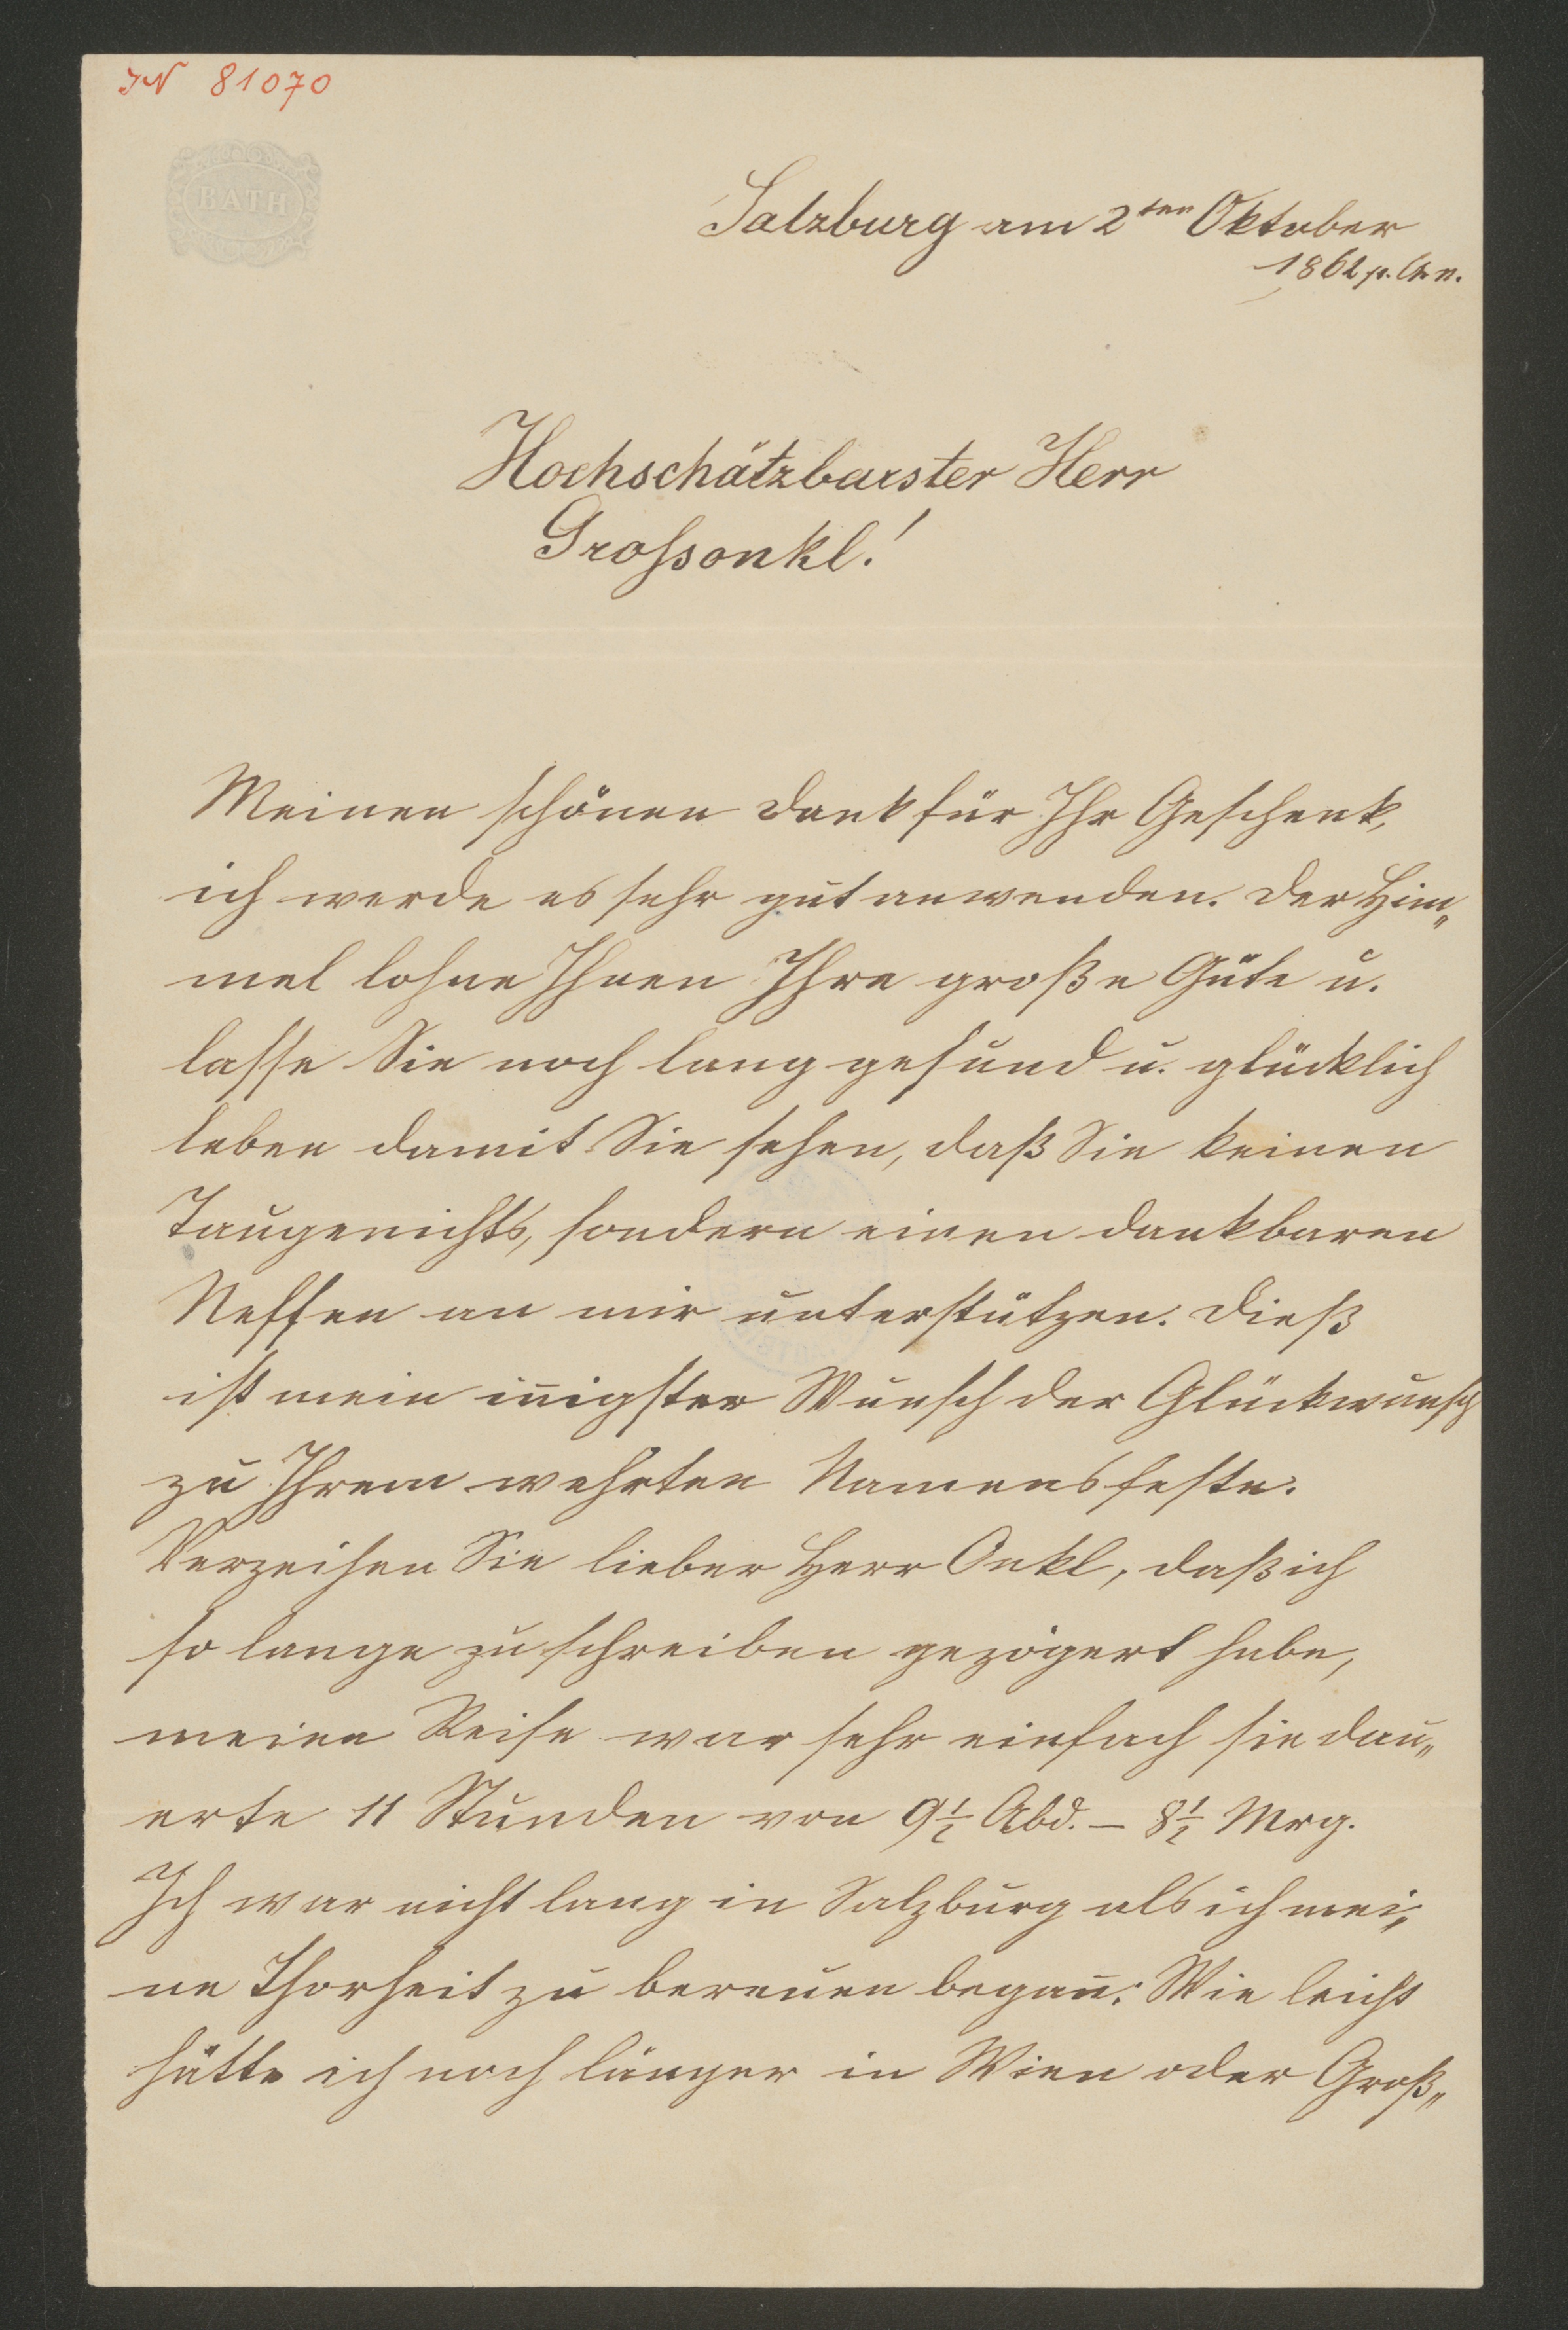 IN 81070
BATH
Salzburg am 2ten Oktober
1862 p. Ch. n.
Hochschätzbarster Herr
Grossonkl!
Meinen schönen Dank für Ihr Geschenk,
ich werde es sehr gut anwenden. Der Him„
mel lohne Ihnen Ihre große Güte u.
lasse Sie noch lang gesund u. glücklich
leben damit Sie sehen, daß Sie keinen
Taugenichts, sondern einen dankbaren
Neffen an mir unterstützen. Dieß
ist mein in̄igster Wunsch der Glückwunsch
zu Ihrem wehrten Namensfeste.
Verzeihen Sie lieber Herr Onkl, daß ich
so lange zu schreiben gezögert habe,
meine Reise war sehr einfach sie dau„
erte 11 Stunden von 9½ Abd. – 8½ Mrg.
Ich war nicht lang in Salzburg als ich mei„
ne Thorheit zu bereuen began̄. Wie leicht
hätte ich noch länger in Wien oder Groß„